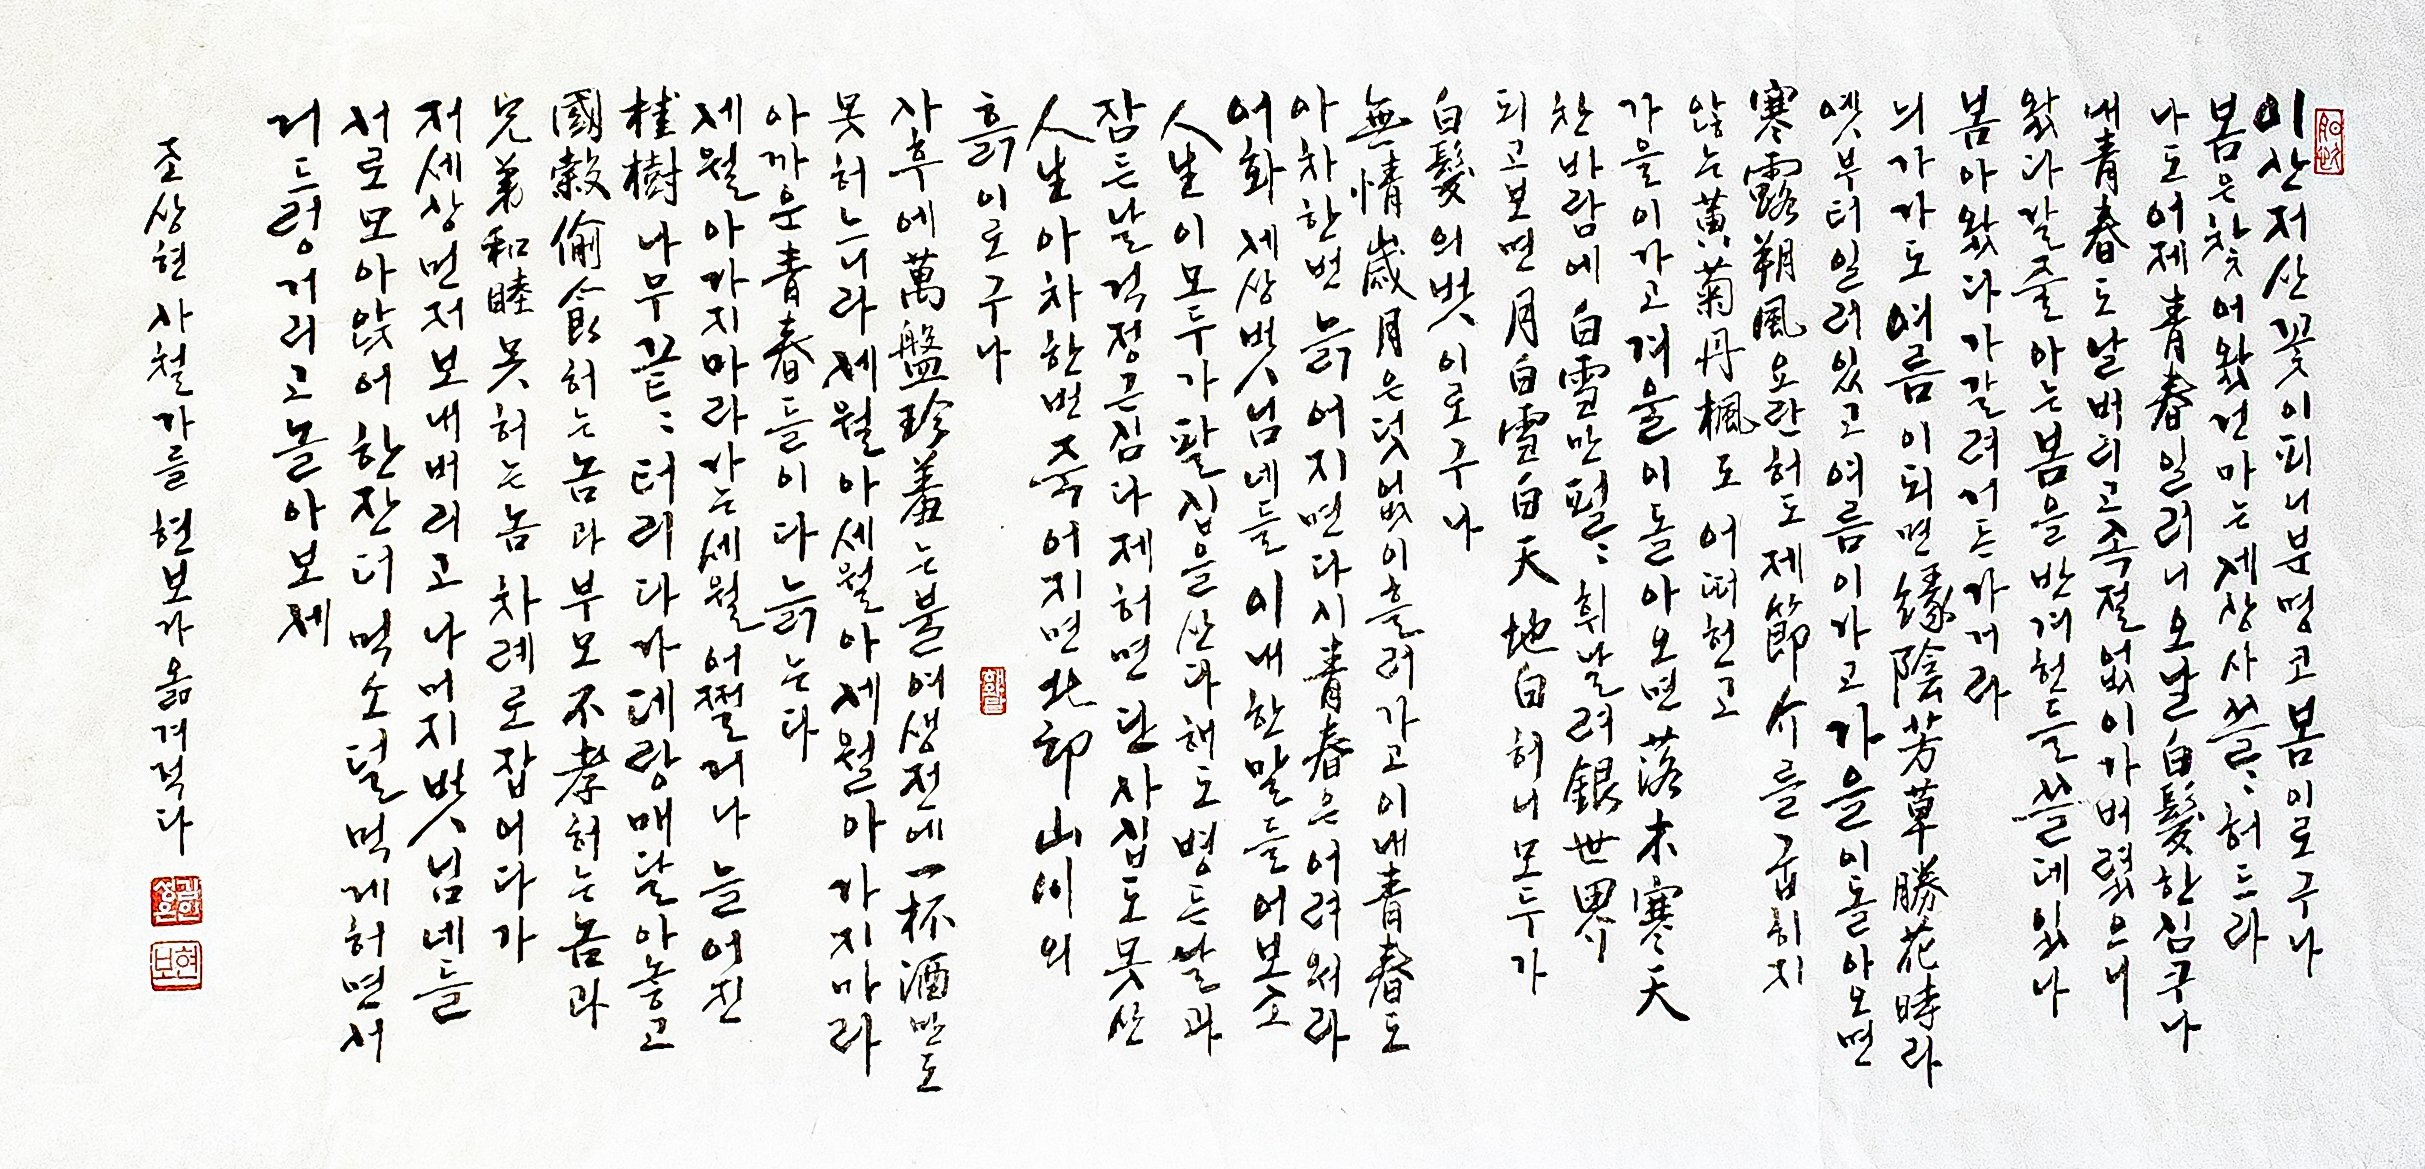 이산저산꽃이피니분명코봄이로구나
봄은찾어왔건마는세상사쓸〻허드라
나도어제靑春일러니오날白髮한심구나
내靑春도날버리고속절없이가버렸으니
왔다갈줄아는봄을반겨헌들쓸데있나
봄아왔다가갈려거든가거라
늬가가도여름이되면綠陰芳草勝花時라
옛부터일러있고여름이가고가을이돌아오면
寒露朔風요란허도제節介를굽히지
않는黃菊丹楓도어떠헌고
가을이가고겨울이돌아오면落木寒天
찬바람에白雪만펄〻휘날려銀世界
되고보면月白雪白天地白허니모두가
白髮의벗이로구나
無情歲月은덧없이흘러가고이내靑春도
아차한번늙어지면다시靑春은어려워라
어화세상벗님네들이내한말들어보소
人生이모두가팔십을산다해도병든날과
잠든날걱정근심다제허면단사십도못산
人生아차한번죽어지면北邙山川의
흙이로구나
사후에萬盤珍羞는불여생전에一杯酒만도
못허느니라세월아세월아세월아가지마라
아까운靑春들이다늙는다
세월아가지마라가는세월어쩔거나늘어진
桂樹나무끝〻터리다가데랑매달아놓고
國穀偷食허는놈과부모不孝허는놈과
兄弟和睦못허는놈차례로잡어다가
저세상먼저보내버리고나머지벗님네들
서로모아앉어한잔더먹소덜먹게허면서
거드렁거리고놀아보세
조상현사철가를현보가옮겨적다